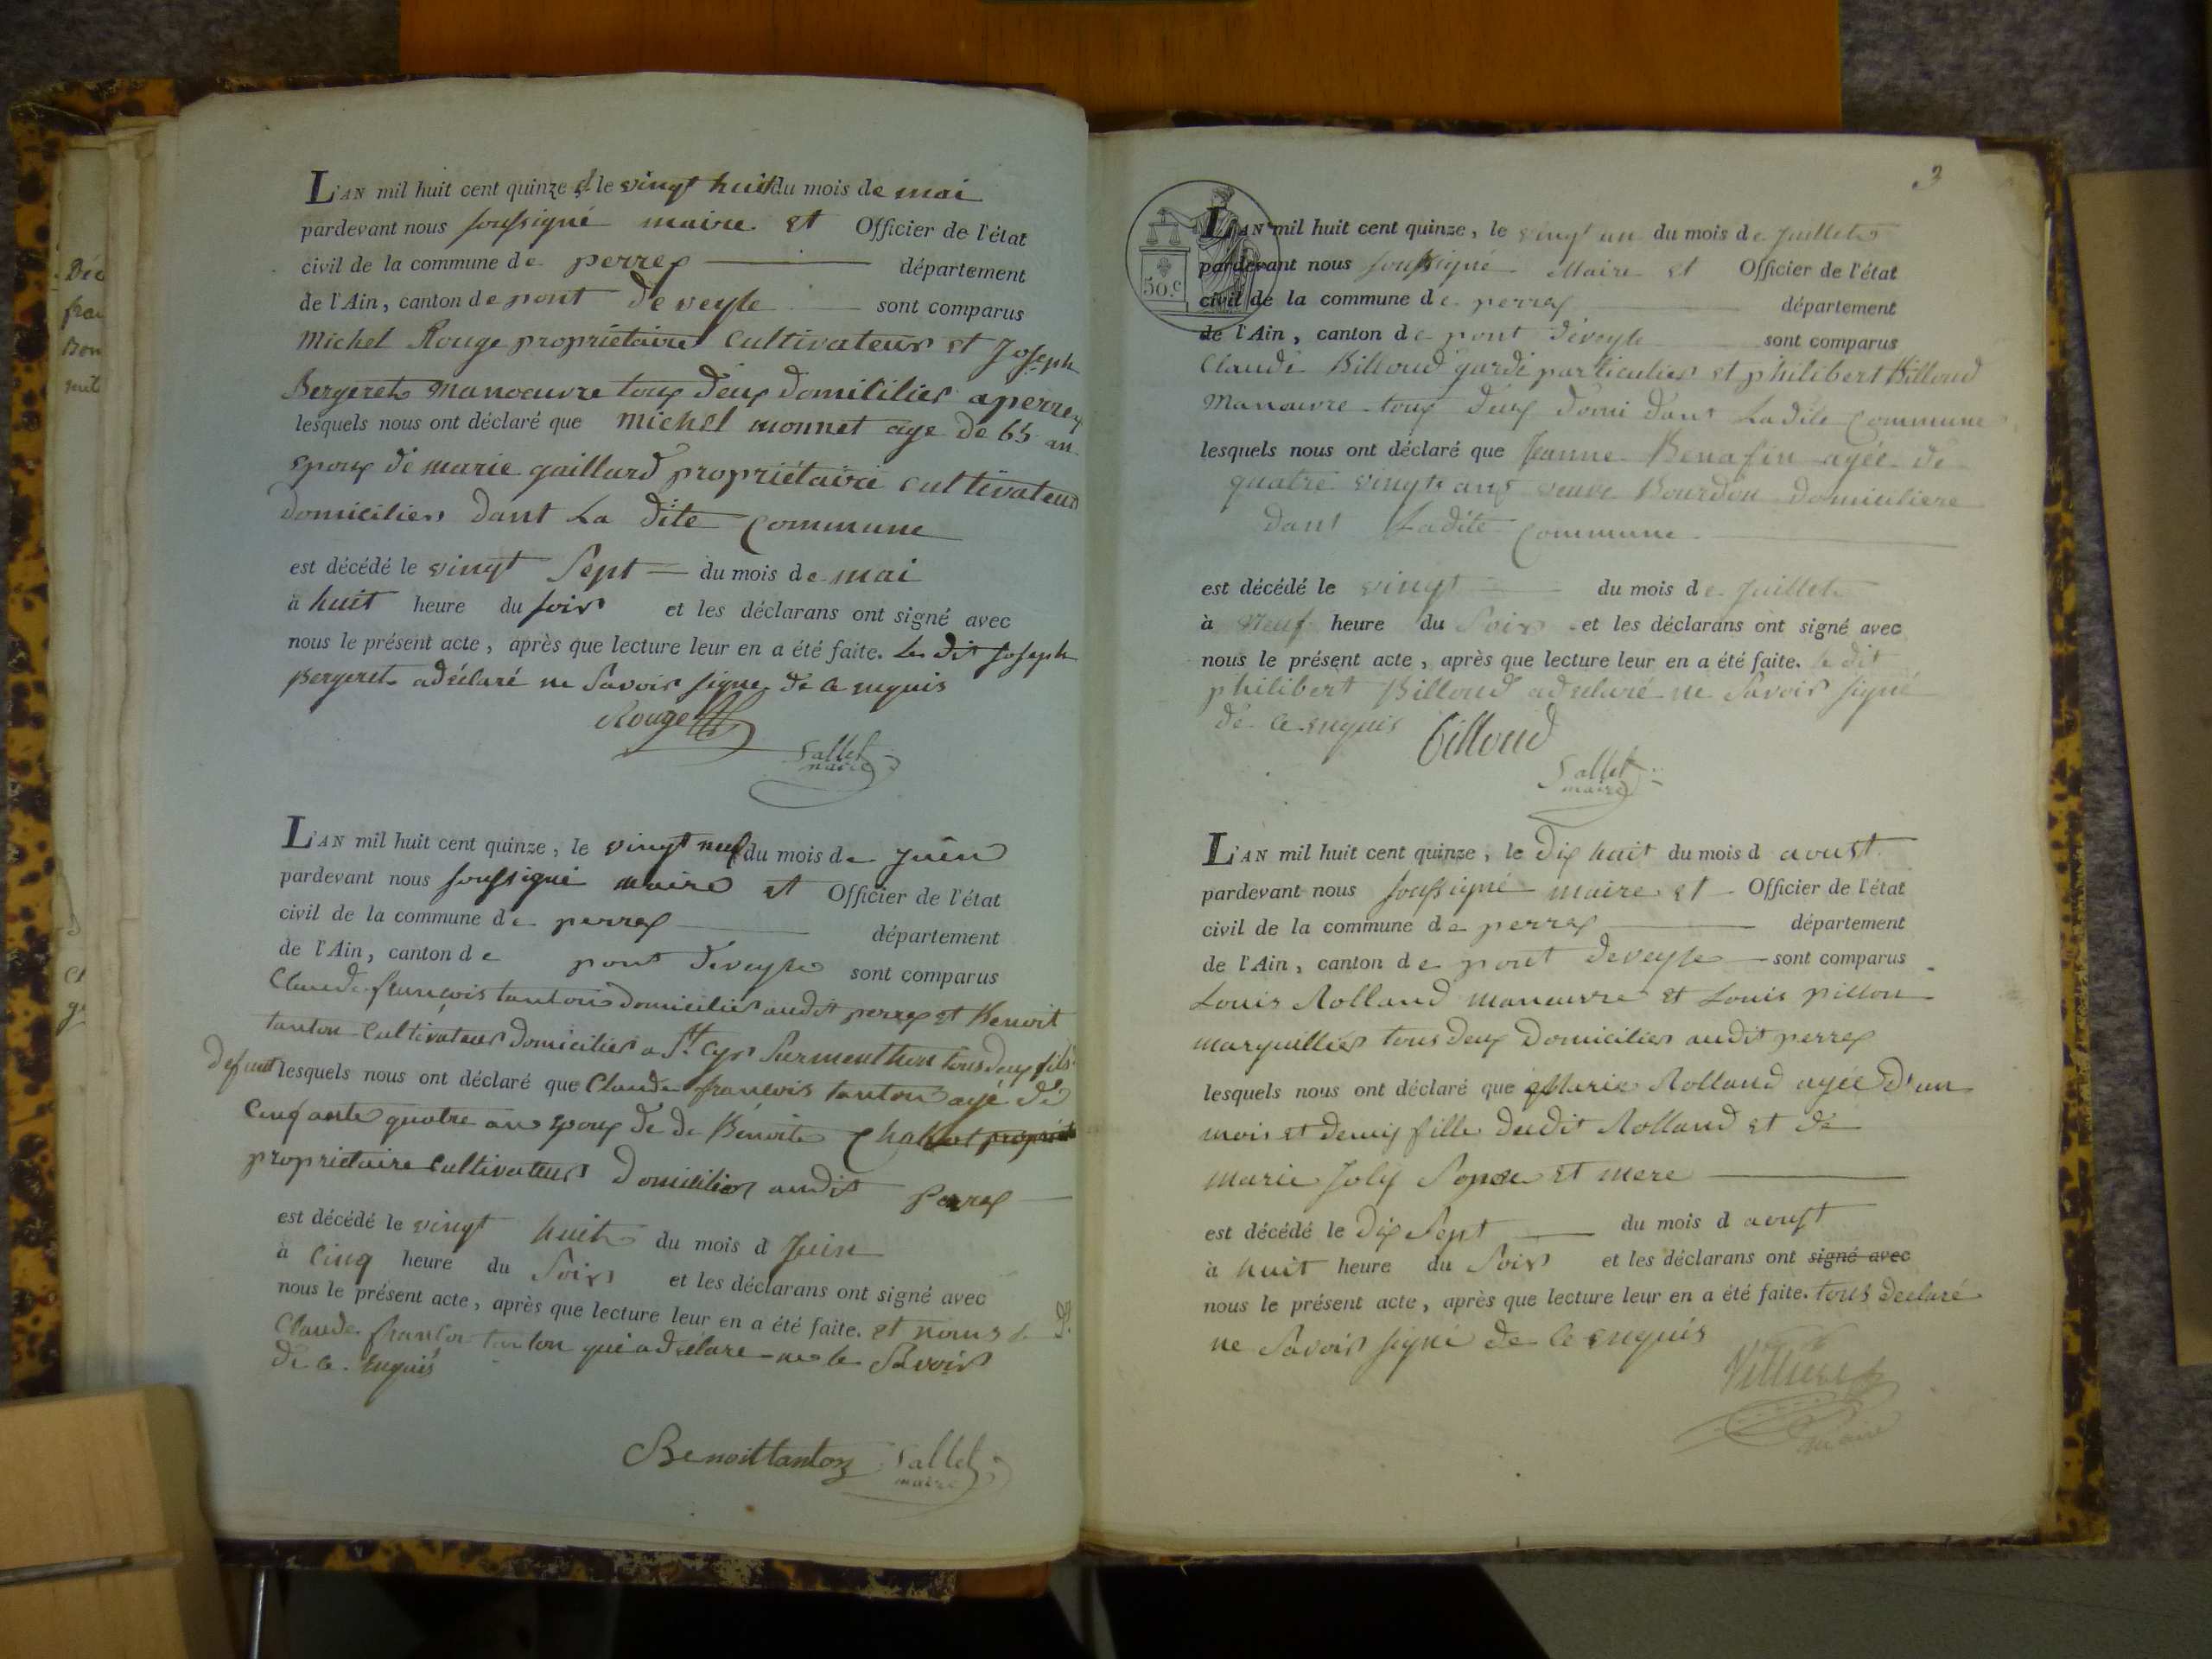 L'AN mil huit cent quinze le vingt huit du mois de mai
pardevant nous soussigné maire et Officier de l'état
civil de la commune de perrex département
de l'Ain, canton de pont de veyle sont comparus
Michel Rouge propriétaire Cultivateur et Joseph
Bergeret Manoeuvre tous deux domicilies a perrex
lesquels nous ont déclaré que Michel monnet age de 65 an
epoux de marie gaillard propriétaire cultivateur
domicilier dant La dite Commune
est décédé le vingt Sept du mois de mai
à huit heure du soir et les déclarans ont signé avec
nous le présent acte, après que lecture leur en a été faite. Le dit Joseph
Bergeret a déclaré ne Savoir signe de ce enquis
Rouge
Sallet
maire
L'AN mil huit cent quinze, le vingt neuf du mois de Juin
pardevant nous soussigné maire et Officier de l'état
civil de la commune de perrex département
de l'Ain, canton de pont deveyle sont comparus
Claude françois tanton domicilier audit perrex et Benoit
tanton Cultivateur domicilier a St. Cyr Surmenthon tous deux fils
defunt lesquels nous ont déclaré que Claude françois tanton agé de
Cinquante quatre ans epoux de de Benoite
propriétaire Cultivateur domicilier audit perrex
est décédé le vingt huit du mois d Juin
à Cinq heure du Soir et les déclarans ont signé avec
nous le présent acte, après que lecture leur en a été faite. et nous
Claude françois tanton qui a déclaré ne le Savoir
de ce Enquis
Benoit tanton Sallet
maire
Déc
frai
Bon
3
50.c
L'AN mil huit cent quinze, le vingt un du mois de Juillet
pardevant nous soussigné Maire et Officier de l'état
civil de la commune de perrex département
de l'Ain, canton de pont deveyle sont comparus
Claude Billoud garde particulier et philibert Billoud
Manoeuvre tous deux domi dant Ladite Commune
lesquels nous ont déclaré que Jeanne Benafin agée de
quatre vingts ans veuve Bourdon domiciliere
dant Ladite Commune
est décédé le vingt du mois de Juillet
à Neuf heure du Soir et les déclarans ont signé avec
nous le présent acte, après que lecture leur en a été faite. le dit
philibert Billoud a déclaré ne Savoir signé
de ce enquis billoud
Sallet
maire
L'AN mil huit cent quinze, le dix huit du mois d aoust
pardevant nous soussigné maire et Officier de l'état
civil de la commune de perrex département
de l'Ain, canton de pont deveyle sont comparus
Louis Rolland manoeuvre et Louis pillon
marguillier tous deux domicilier audit perrex
lesquels nous ont déclaré que Marie Rolland agée d'un
mois et demis fille dudit Rolland et de
marie Joly et mere
est décédé le dix Sept du mois d aoust
à huit heure du Soir et les déclarans ont signé avec
nous le présent acte, après que lecture leur en a été faite. tous declaré
ne Savoir signé de ce enquis
maire